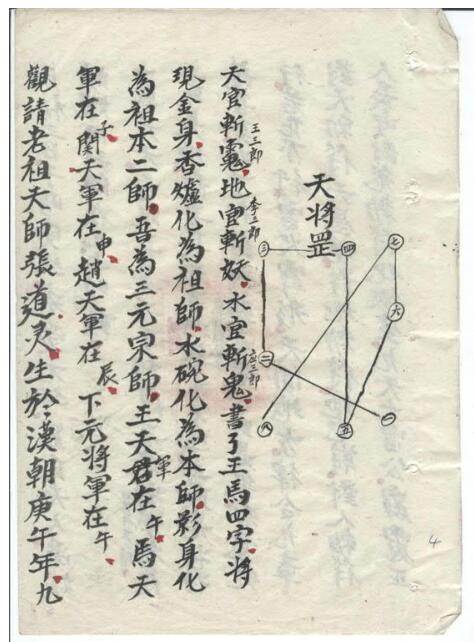 天將罡
一 二 三 四 五 六 七 八
天官斬䰢王三郎地官斬妖李三郎水官斬鬼應三郎書了王馬四字將
現金身香爐化為祖師水碗化為本師影身化
為祖本二師吾為三元宗師王天君軍在午馬天
軍在子関天軍在申趙天軍在辰下元將軍在午
觀請老祖天師張道灵生於漢朝庚午年九
4